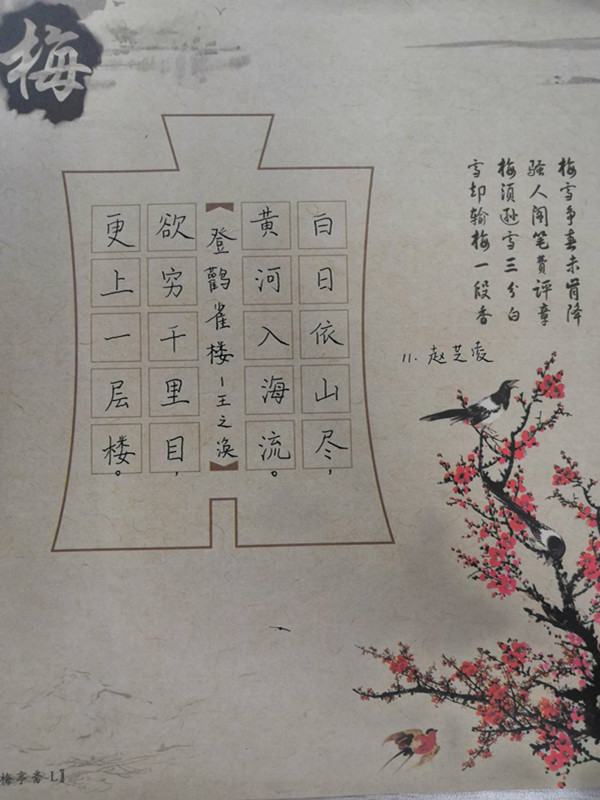 梅
梅雪争春未肯降
骚人阁笔费评章
梅须逊雪三分白
雪却输梅一段香
11. 赵芝凌
白日依山尽，
黄河入海流。
登鹳雀楼-王之涣
欲穷千里目，
更上一层楼。
梅亭香-L】